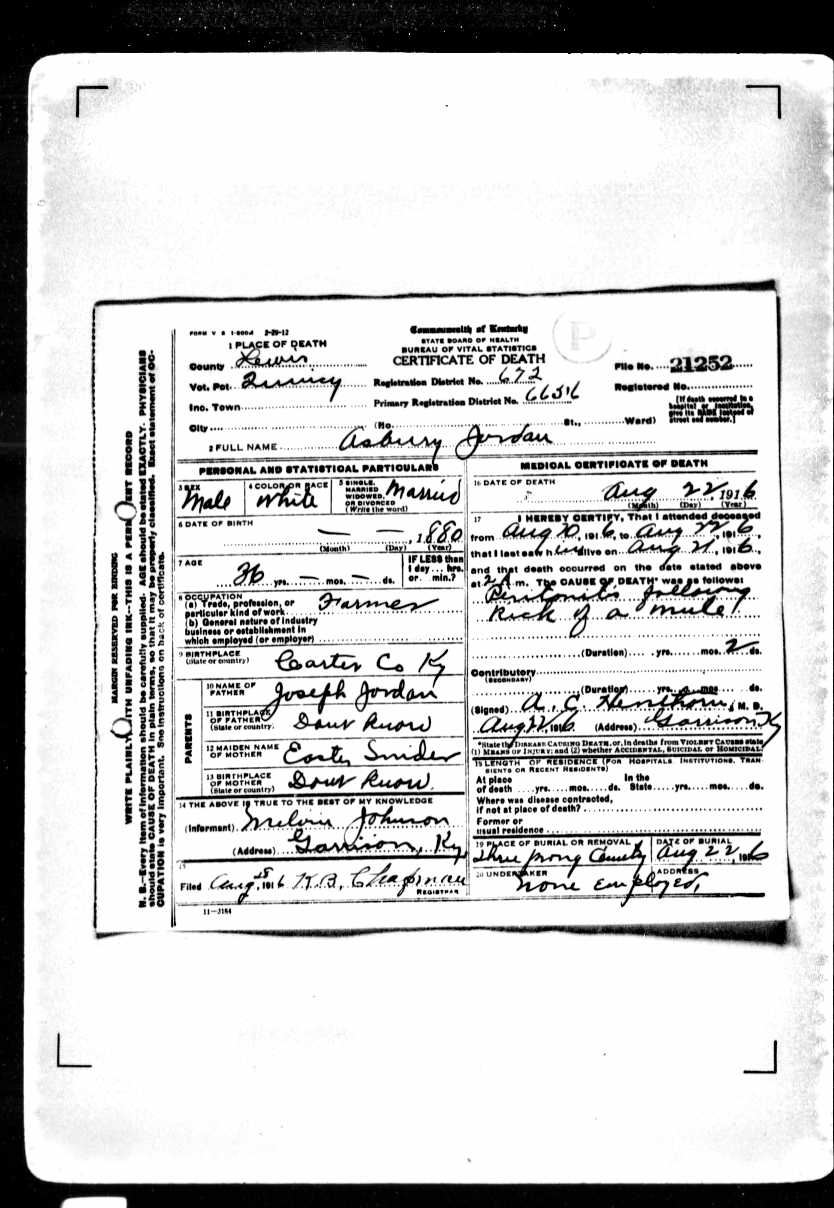 FORM V S 1-500M 2-29-12
Commonwealth of Kentucky
STATE BOARD OF HEALTH
BUREAU OF VITAL STATISTICS
CERTIFICATE OF DEATH
P
1 PLACE OF DEATH
County Lewis
Vot. Pct. Quincy
Inc. Town
City
Registration District No. 672
Primary Registration District No. 6656
(No. St., Ward)
File No. 21252
Registered No.
[If death occurred in a
hospital or institution,
give its NAME instead of
street and number.]
2 FULL NAME Asbury Jordan
PERSONAL AND STATISTICAL PARTICULARS
3 SEX
Male
4 COLOR OR RACE
White
5 SINGLE,
MARRIED
WIDOWED,
OR DIVORCED
(Write the word)
Married
6 DATE OF BIRTH
— — , 1880
(Month) (Day) (Year)
7 AGE
36 yrs. — mos. — ds.
IF LESS than
1 day ... hrs.
or min.?
8 OCCUPATION
(a) Trade, profession, or
particular kind of work Farmer
(b) General nature of industry
business or establishment in
which employed (or employer)
9 BIRTHPLACE
(State or country) Carter Co Ky
PARENTS
10 NAME OF
FATHER Joseph Jordan
11 BIRTHPLACE
OF FATHER
(State or country) Dont Know
12 MAIDEN NAME
OF MOTHER Easty Snider
13 BIRTHPLACE
OF MOTHER
(State or country) Dont Know.
14 THE ABOVE IS TRUE TO THE BEST OF MY KNOWLEDGE
(Informant) Melvin Johnson
(Address) Garrison, Ky
15
Filed Aug 28 1916 K.B. Chapman
REGISTRAR
11—3184
MEDICAL CERTIFICATE OF DEATH
16 DATE OF DEATH
Aug 22 1916
(Month) (Day) (Year)
17 I HEREBY CERTIFY, That I attended deceased
from Aug 20, 1916, to Aug 22, 1916,
that I last saw him alive on Aug 21, 1916,
and that death occurred on the date stated above
at 2 A m. The CAUSE OF DEATH* was as follows:
Peritonitis following
kick of a mule
(Duration) yrs. mos. 2 ds.
Contributory
(SECONDARY)
(Duration) yrs. mos. ds.
(Signed) A. C. Henthorn, M. D.
Aug 22, 1916 (Address) Garrison Ky
*State the DISEASE CAUSING DEATH, or, in deaths from VIOLENT CAUSES state
(1) MEANS OF INJURY; and (2) whether ACCIDENTAL, SUICIDAL OR HOMICIDAL
18 LENGTH OF RESIDENCE (FOR HOSPITALS INSTITUTIONS, TRAN
SIENTS OR RECENT RESIDENTS)
At place In the
of death yrs. mos. ds. State yrs. mos. ds.
Where was disease contracted,
if not at place of death?
Former or
usual residence
19 PLACE OF BURIAL OR REMOVAL
Three prong Cemetery
DATE OF BURIAL
Aug 22, 1916
20 UNDERTAKER ADDRESS
None employed,
MARGIN RESERVED FOR BINDING
WRITE PLAINLY, WITH UNFADING INK—THIS IS A PERMANENT RECORD
N. B.—Every item of information should be carefully supplied. AGE should be stated EXACTLY. PHYSICIANS
should state CAUSE OF DEATH in plain terms, so that it may be properly classified. Exact statement of OC-
CUPATION is very important. See instructions on back of certificate.